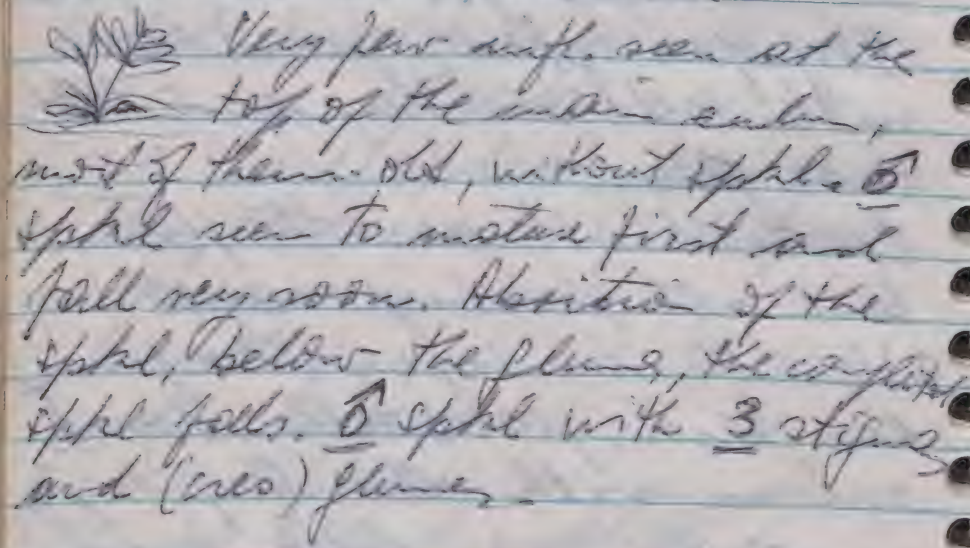 Very few infl. seen at the
top of the main culm,
most of them old, without spkl. ♂
spkl seem to mature first and
fall very soon. Abscition of the
spkl, below the glume, the complete
spkl falls. ♂ spkl with 3 stigmas
and (creo) glumes.